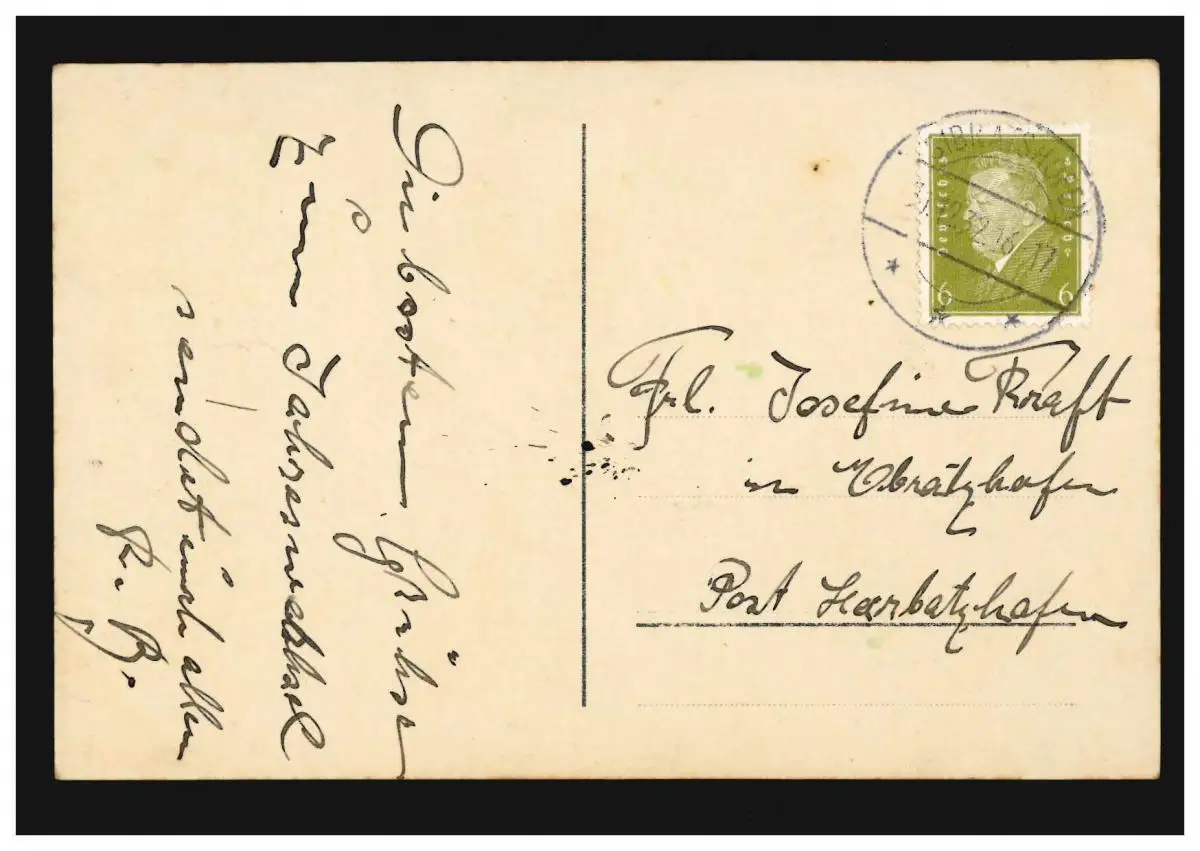 Die besten Grüße
zum Jahreswechsel
sendet euch allen
K. B.
SIBRATSHOFEN
31.12.32.16-17
Deutsches Reich
6 6
Frl. Josefine Kraft
in Ebratzhofen
Post Harbatzhofen